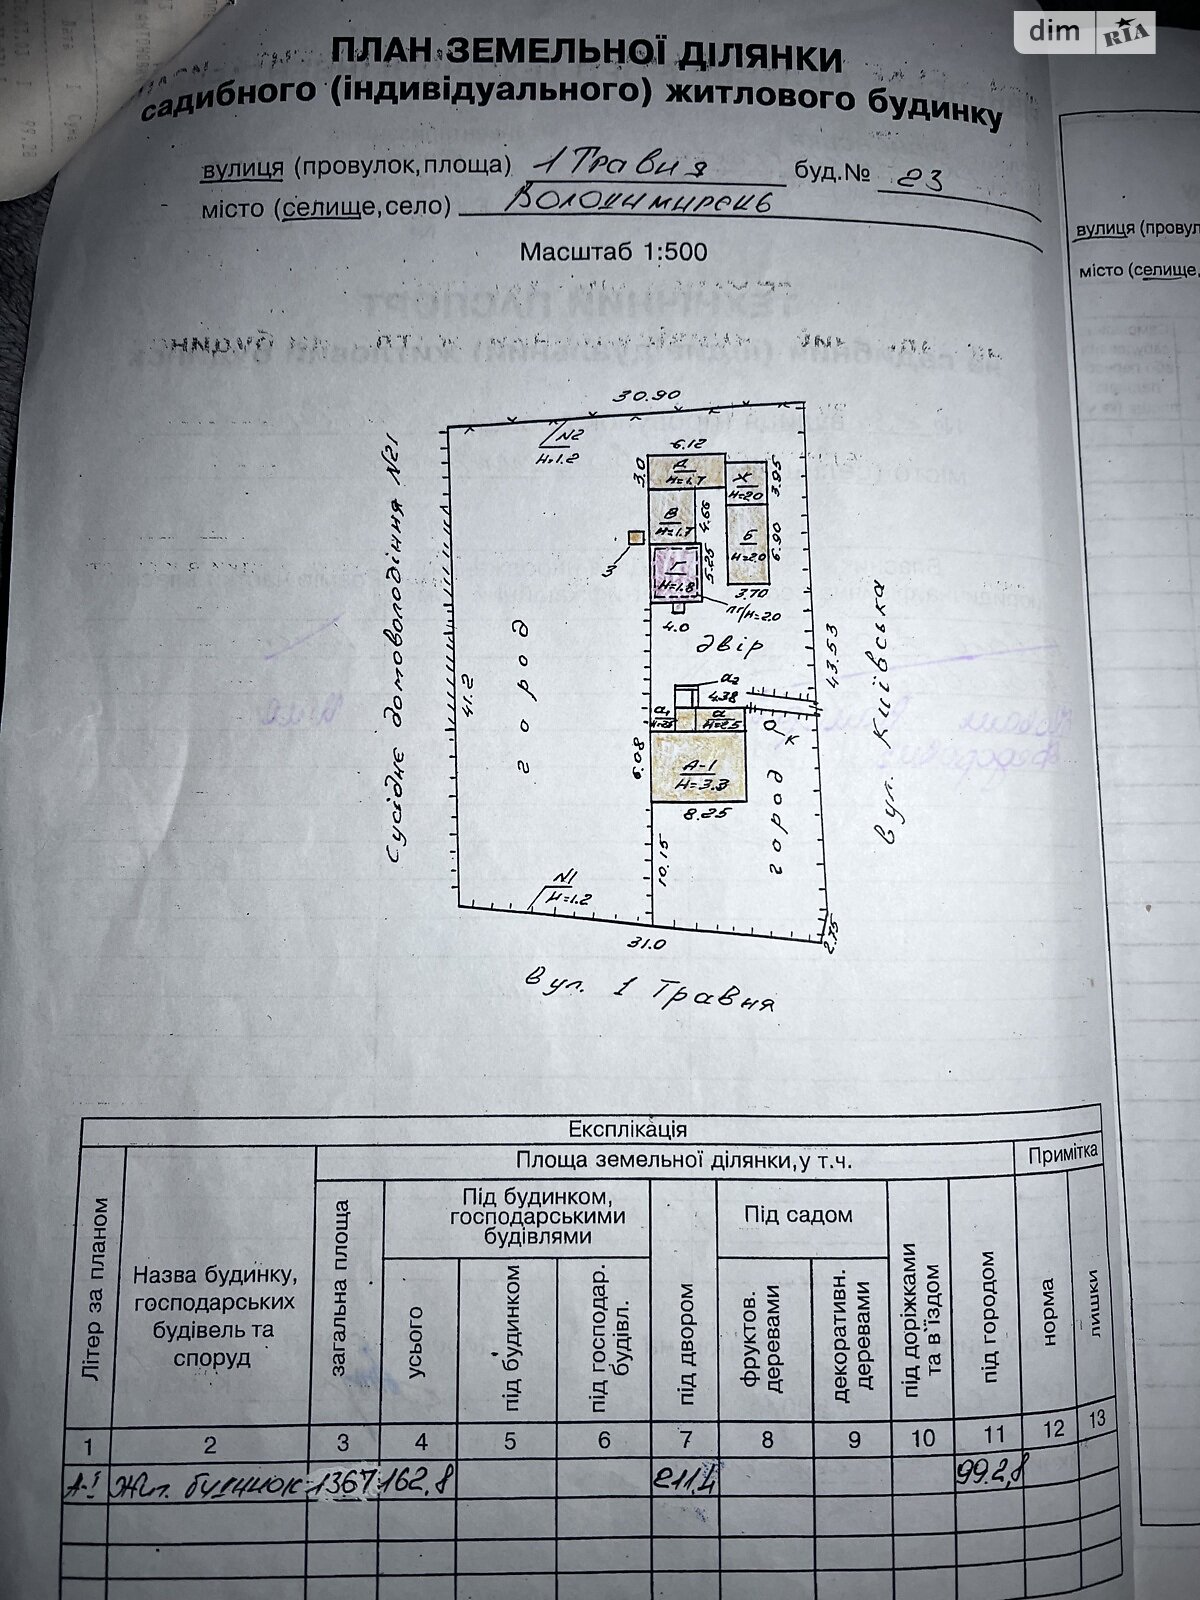 dim RIA
ПЛАН ЗЕМЕЛЬНОЇ ДІЛЯНКИ
садибного (індивідуального) житлового будинку
вулиця (провулок, площа) 1 Травня буд.№ 23
місто (селище, село) Володимирець
Масштаб 1:500
30.90
N2
H=1.2
6.12
3.0
Д
H=1.7
Х
H=2.0
3.95
В
H=1.7
4.66
Б
H=2.0
6.90
З
Г
H=1.8
5.25
3.70
пг/H=2.0
4.0
двір
Сусіднє домоволодіння N21
41.2
город
43.53
вул. Київська
а2
4.38
а1
а
H=2.5
К
6.08
А-1
H=3.3
8.25
город
10.15
N1
H=1.2
31.0
2.75
вул. 1 Травня
Експлікація
Площа земельної ділянки, у т.ч.
Примітка
Літер за планом
Назва будинку, господарських будівель та споруд
загальна площа
Під будинком, господарськими будівлями
усього
під будинком
під господар. будівл.
під двором
Під садом
фруктов. деревами
декоративн. деревами
під доріжками та в'їздом
під городом
норма
лишки
1 2 3 4 5 6 7 8 9 10 11 12 13
А-1 Жит. будинок 1367 162,8 211,4 992,8
вулиця (провул
місто (селище,